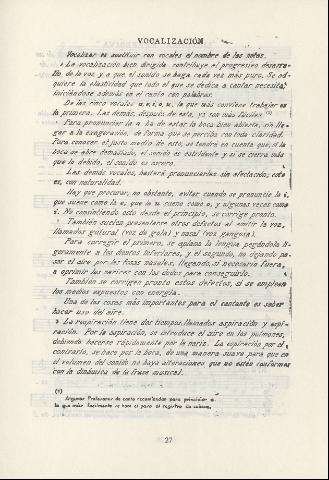 VOCALIZACIÓN
Vocalizar es sustituir con vocales el nombre de las notas.
La vocalización bien dirigida contribuye al progresivo desarro-
llo de la voz y a que el sonido se haga cada vez más puro. Se ad-
quiere la elasticidad que todo el que se dedica a cantar necesita,
iniciándose además en el canto con palabras.
De las cinco vocales a, e, i, o, u, la que más conviene trabajar es
la primera. Las demás, después de esta, ya son más fáciles. (1)
Para pronunciar la a ha de estar la boca bien abierta, sin lle-
gar a la exageración, de forma que se perciba con toda claridad.
Para conocer el justo medio de esto, se tendrá en cuenta que, si la
boca se abre demasiado, el sonido es estridente y si se cierra más
que lo debido, el sonido es oscuro.
Las demás vocales, bastará pronunciarlas sin afectación; esto
es, con naturalidad.
Hay que procurar, no obstante, evitar cuando se pronuncie la i,
que suene como la e, que la u suene como o, y algunas veces como
i. No consintiendo esto desde el principio, se corrige pronto.
También suelen presentarse otros defectos al emitir la voz,
llamados gutural (voz de gola) y nasal (voz gangosa).
Para corregir el primero, se aplana la lengua pegándola li-
geramente a los dientes inferiores, y el segundo, no dejando pa-
sar el aire por las fosas nasales, llegando, si necesario fuera,
a oprimir las narices con los dedos para conseguirlo.
También se corrigen pronto estos defectos, si se emplean
los medios expuestos con energía.
Una de las cosas más importantes para el cantante es saber
hacer uso del aire.
La respiración tiene dos tiempos, llamados aspiración y espi-
ración. Por la aspiración, se introduce el aire en los pulmones,
debiendo hacerse rápidamente por la nariz. La espiración por el
contrario, se hace por la boca, de una manera suave para que en
el volumen del sonido no haya alteraciones que no estén conformes
con la dinámica de la frase musical.
(1)
Algunos Profesores de canto recomiendan para principiar a
la que más fácilmente se hace el paso al registro de cabeza.
27